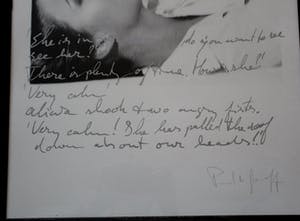 She is in do you want to see
see her?
There is plenty of time. How's she"
'Very calm'
shook two angry fists.
'Very calm! She has pulled the roof
down about our heads!'